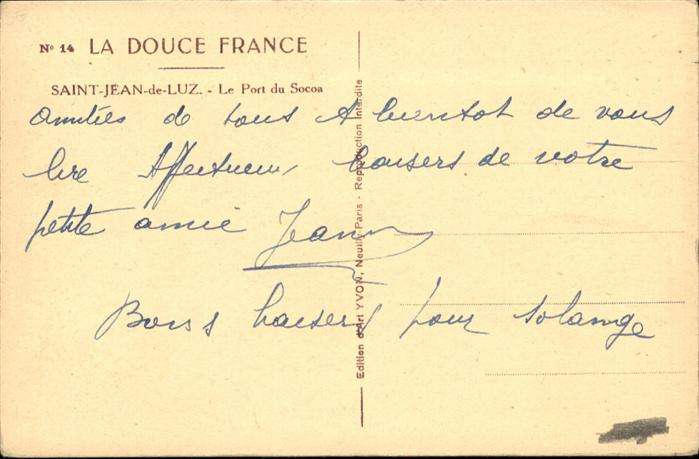 Nº 14 LA DOUCE FRANCE
SAINT-JEAN-de-LUZ. - Le Port du Socoa
Amitiés de tous A bientot de vous
lire Affectueux baisers de votre
petite amie Jeanne
Bons baisers pour Solange
Edition d'Art YVON, Neuilly Paris - Reproduction Interdite